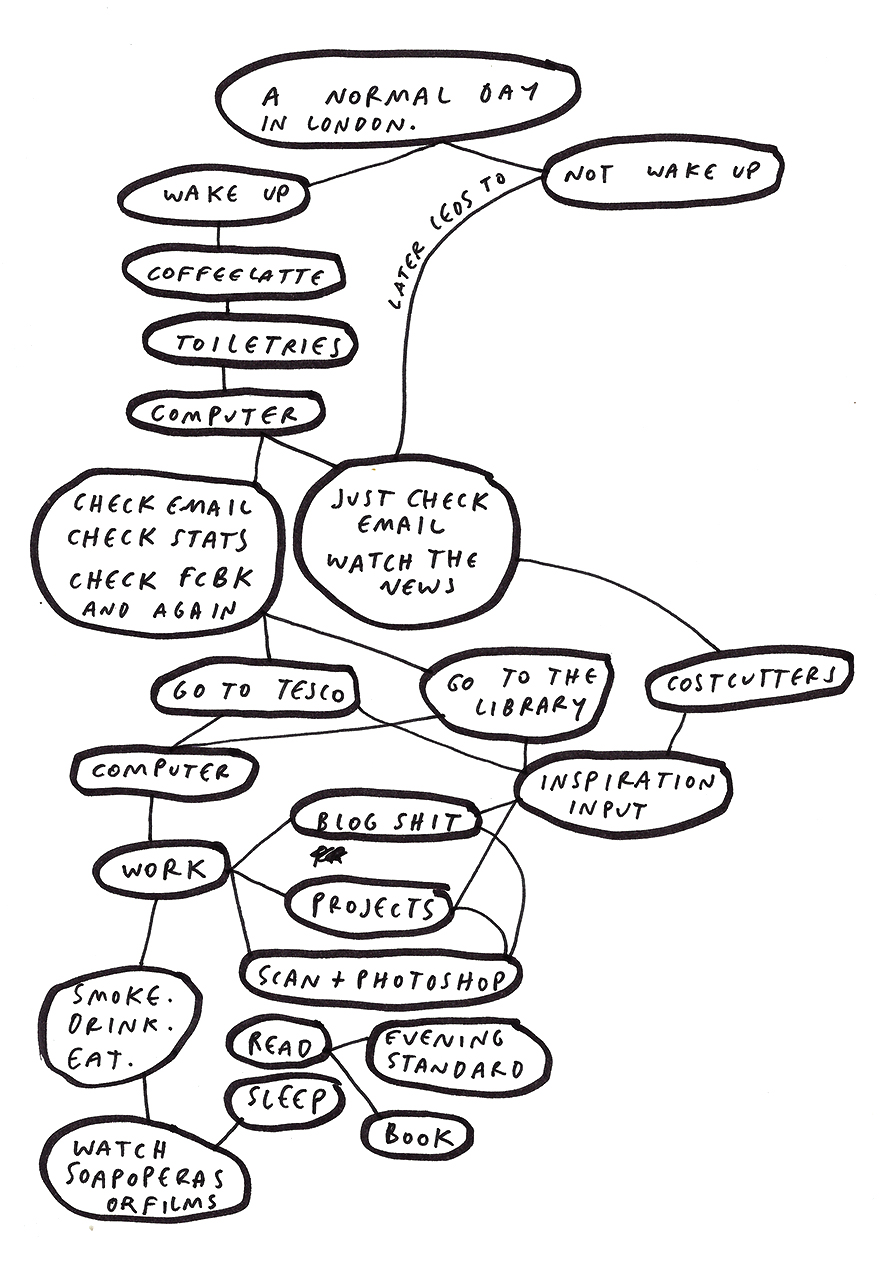 A NORMAL DAY
IN LONDON.
WAKE UP
NOT WAKE UP
LATER LEDS TO
COFFEELATTE
TOILETRIES
COMPUTER
CHECK EMAIL
CHECK STATS
CHECK FCBK
AND AGAIN
JUST CHECK
EMAIL
WATCH THE
NEWS
GO TO TESCO
GO TO THE
LIBRARY
COSTCUTTERS
COMPUTER
INSPIRATION
INPUT
BLOG SHIT
WORK
PROJECTS
SCAN + PHOTOSHOP
SMOKE.
DRINK.
EAT.
READ
EVENING
STANDARD
SLEEP
BOOK
WATCH
SOAPOPERAS
OR FILMS